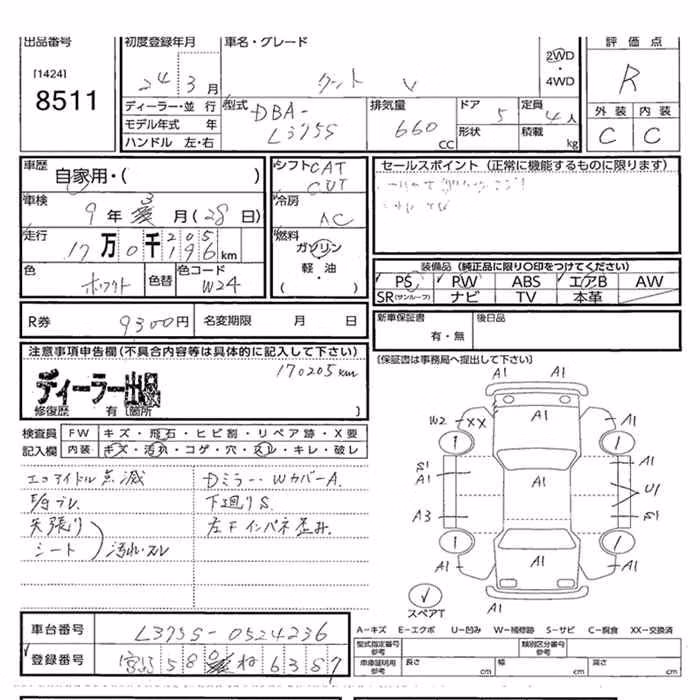 出品番号
[1424]
8511
初度登録年月
24 3 月
車名・グレード
タント V
2WD
・
4WD
評価点
R
外装 内装
C C
ディーラー・並行
モデル年式 年
ハンドル 左・右
型式
DBA-
L375S
排気量
660 CC
ドア
5
形状
定員
4人
積載 kg
車歴
自家用・( )
車検
9年 3 月(28日)
走行
17万0千205 km
196
色
ホワイト
色替
色コード
W24
シフト CAT
CVT
冷房
AC
燃料
ガソリン
軽・油
( )
セールスポイント(正常に機能するものに限ります)
装備品(純正品に限り○印をつけてください)
PS PW ABS エアB AW
SR(サンルーフ) ナビ TV 本革
R券 9300円
名変期限 月 日
新車保証書
有・無
後日品
(保証書は事務局へ提出して下さい)
注意事項申告欄(不具合内容等は具体的に記入して下さい)
170205km
ディーラー出品
修復歴 有〔箇所 〕
検査員
記入欄
FW キズ・飛石・ヒビ割・リペア跡・X要
内装 キズ・汚れ・コゲ・穴・スレ・キレ・破レ
エコアイドル点滅
天張り
シート
汚れ・スレ
Dミラー・WカバーA.
下廻りS.
左Fインパネ歪み.
A1 A1
W2 XX A1 A1
S1
A1
A1
A1
U1
A3
S1
A1 A1 A1
スペアT
A1 A1
A-キズ E-エクボ U-凹み W-補修跡 S-サビ C-腐食 XX-交換済
車台番号 L375S-0524236
登録番号 宮城 58 ね 6357
型式指定番号
参考
類別区分番号
参考
車庫証明用
参考
長さ cm
幅 cm
高さ cm